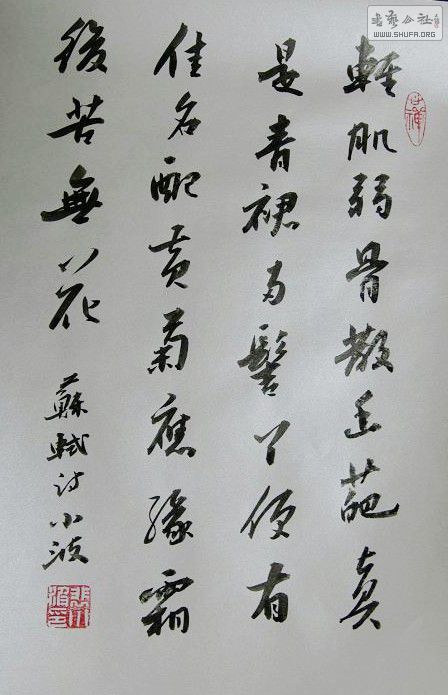 輕肌弱骨散幽葩真
是青裙兩髻丫便有
佳名配黃菊應緣霜
後苦無花
蘇軾詩小波
书艺公社
WWW.SHUFA.ORG